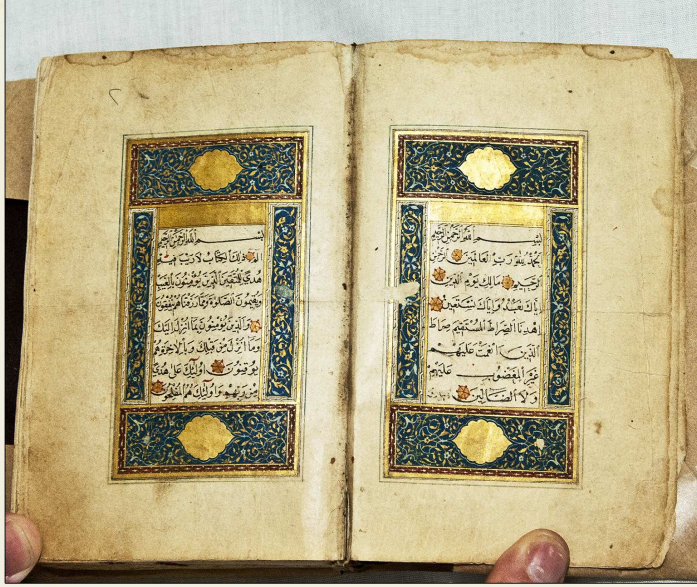 بسم الله الرحمن الرحيم
الحمد لله رب العالمين الرحمن
الرحيم مالك يوم الدين
إياك نعبد وإياك نستعين
اهدنا الصراط المستقيم صراط
الذين انعمت عليهم
غير المغضوب عليهم
ولا الضالين
بسم الله الرحمن الرحيم
الم ذلك الكتاب لا ريب فيه
هدى للمتقين الذين يؤمنون بالغيب
ويقيمون الصلوة ومما رزقناهم ينفقون
والذين يؤمنون بما انزل اليك
وما انزل من قبلك وبالاخرة هم
يوقنون اولئك على هدى
من ربهم واولئك هم المفلحون